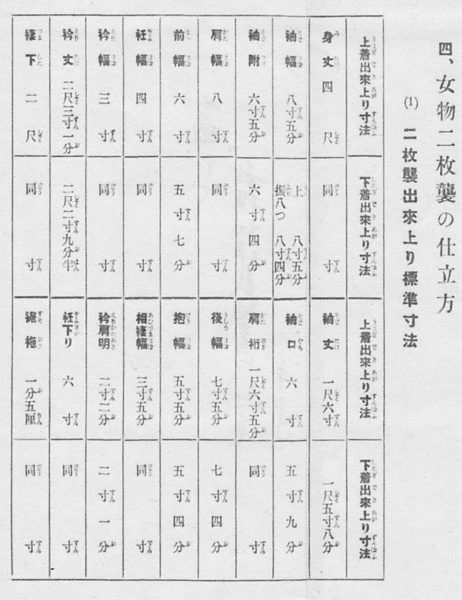 四、女物二枚襲の仕立方
(1) 二枚襲出來上り標準寸法
上着出來上り寸法 下着出來上り寸法 上着出來上り寸法 下着出來上り寸法
身丈 四尺 同寸 袖丈 一尺六寸 一尺五寸八分
袖幅 八寸五分 上 八寸五分 振八つ 八寸四分 袖口 六寸 五寸九分
袖附 六寸五分 六寸四分 肩桁 一尺六寸五分 同寸
肩幅 八寸 同寸 後幅 七寸五分 七寸四分
前幅 六寸 五寸七分 抱幅 五寸五分 五寸四分
衽幅 四寸 同寸 相褄幅 三寸五分 同寸
衿幅 三寸 同寸 衿肩明 二寸二分 二寸一分
衿丈 二尺三寸一分 二尺二寸九分半 衽下り 六寸 同寸
褄下 二尺 同寸 裾袘 一分五厘 同寸